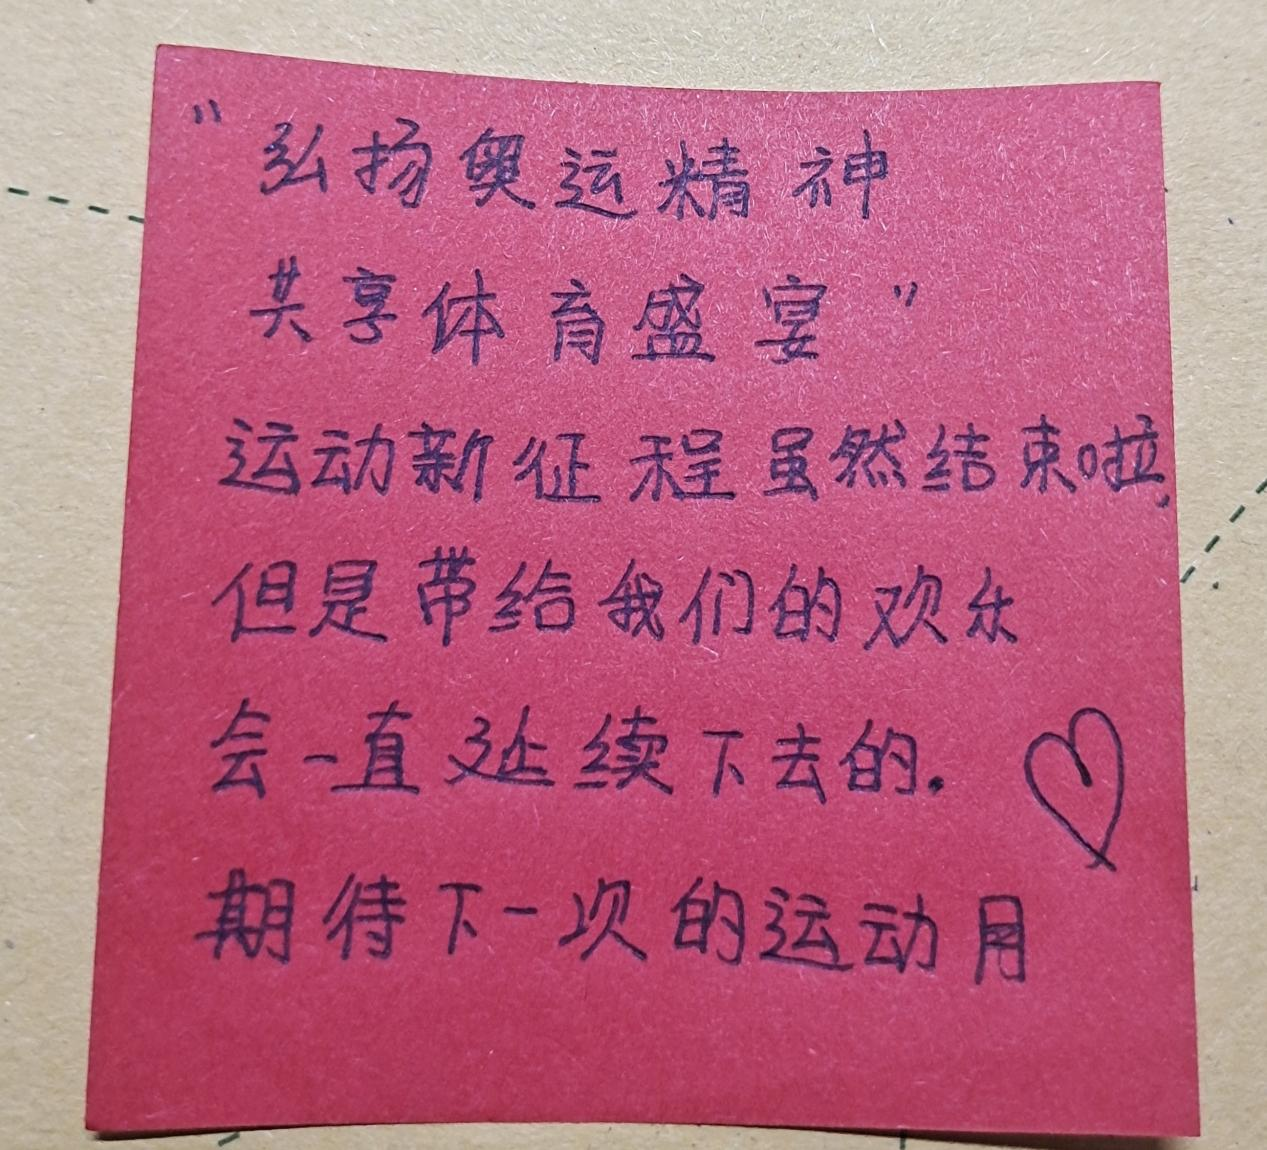 “弘扬奥运精神
共享体育盛宴”
运动新征程虽然结束啦,
但是带给我们的欢乐
会一直延续下去的.
期待下一次的运动月